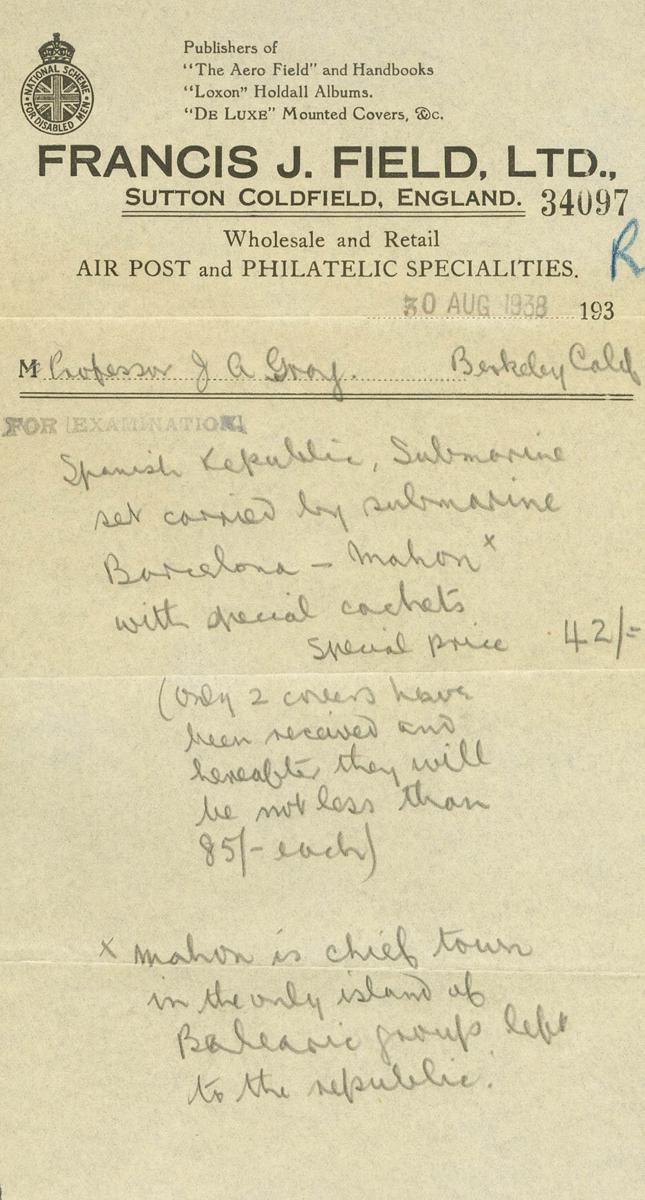 NATIONAL SCHEME
FOR DISABLED MEN
Publishers of
"The Aero Field" and Handbooks
"Loxon" Holdall Albums.
"DE LUXE" Mounted Covers, &c.
FRANCIS J. FIELD, LTD.,
SUTTON COLDFIELD, ENGLAND. 34097
Wholesale and Retail
R
AIR POST and PHILATELIC SPECIALITIES.
30 AUG 1938 193
M Professor J A Gray. Berkeley Calif
FOR EXAMINATION
Spanish Republic, Submarine
set carried by submarine
Barcelona - Mahon x
with special cachets
Special price 42/=
(only 2 covers have
been received and
hereafter they will
be not less than
85/- each)
x Mahon is chief town
in the only island of
Balearic group left
to the republic.